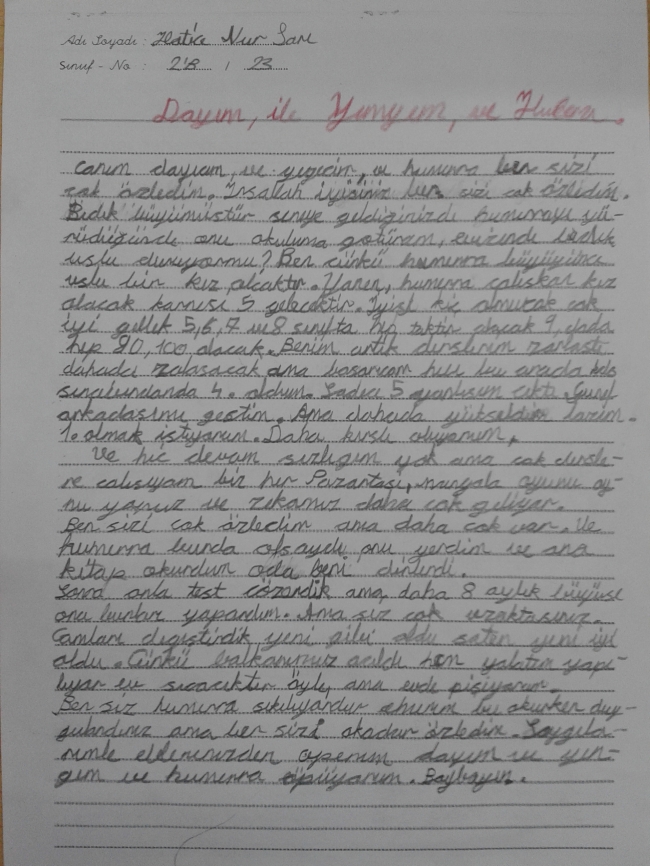 Adı Soyadı: Hatice Nur Sarı
Sınıf - No : 2/B / 23
Dayım, ile Yengem, ve
canım dayıcım, ve yengecim, ve humerra ben sizi
çok özledim. İnşallah iyisiniz ben sizi çok özledim.
büyümüştür seneye geldiğinizde humerrayı yü-
rüdüğünde onu okuluma götürcem, evinizde
uslu duruyormu? Ben çünkü humerra büyüyünce
uslu bir kız olcaktır. humerra çalışkan kız
olacak karnesi 5 gelecektir. iyisi hiç olmucak çok
iyi 5,6,7 ve 8 sınıfta hep taktir alacak
hep 90,100 alacak. Benim artık derslerim zorlaştı
dahada zolaşacak ama başarıcam bu arada
sınavındanda 4. oldum. Sadece 5 yanlışım çıktı. Sınıf
arkadaşımı geçtim. Ama dahada yükselmem lazım.
1. olmak istiyorum. Daha hırslı oluyorum.
Ve hiç devam sızlığım yok ama çok dersle-
re çalışıyom biz her Pazartesi, mangala oyunu oy-
nu yoruz ve zekamız daha çok geliyor.
Ben sizi çok özledim ama daha çok var. Ve
humerra burda olsaydı onu yerdim ve ona
kitap okurdum oda beni dinlerdi.
Sonra onla test çözerdik ama daha 8 aylık büyüse
ona bunları yapardım. Ama siz çok uzaktasınız.
Camları değiştirdik yeni gibi oldu zaten yeni iyi
oldu. Çünkü balkonumuz açıldı hem yalıtım yapı-
lıyor ev sıcacıktır öyle ama evde pişiyorum.
Ben siz humerra sıkılıyordur bu okurken duy-
gulandınız ama ben sizi okadar özledim. Saygıla-
rımla ellerinizden öperim dayım ve yen-
gem ve humerra öpüyorum. Baybayın.